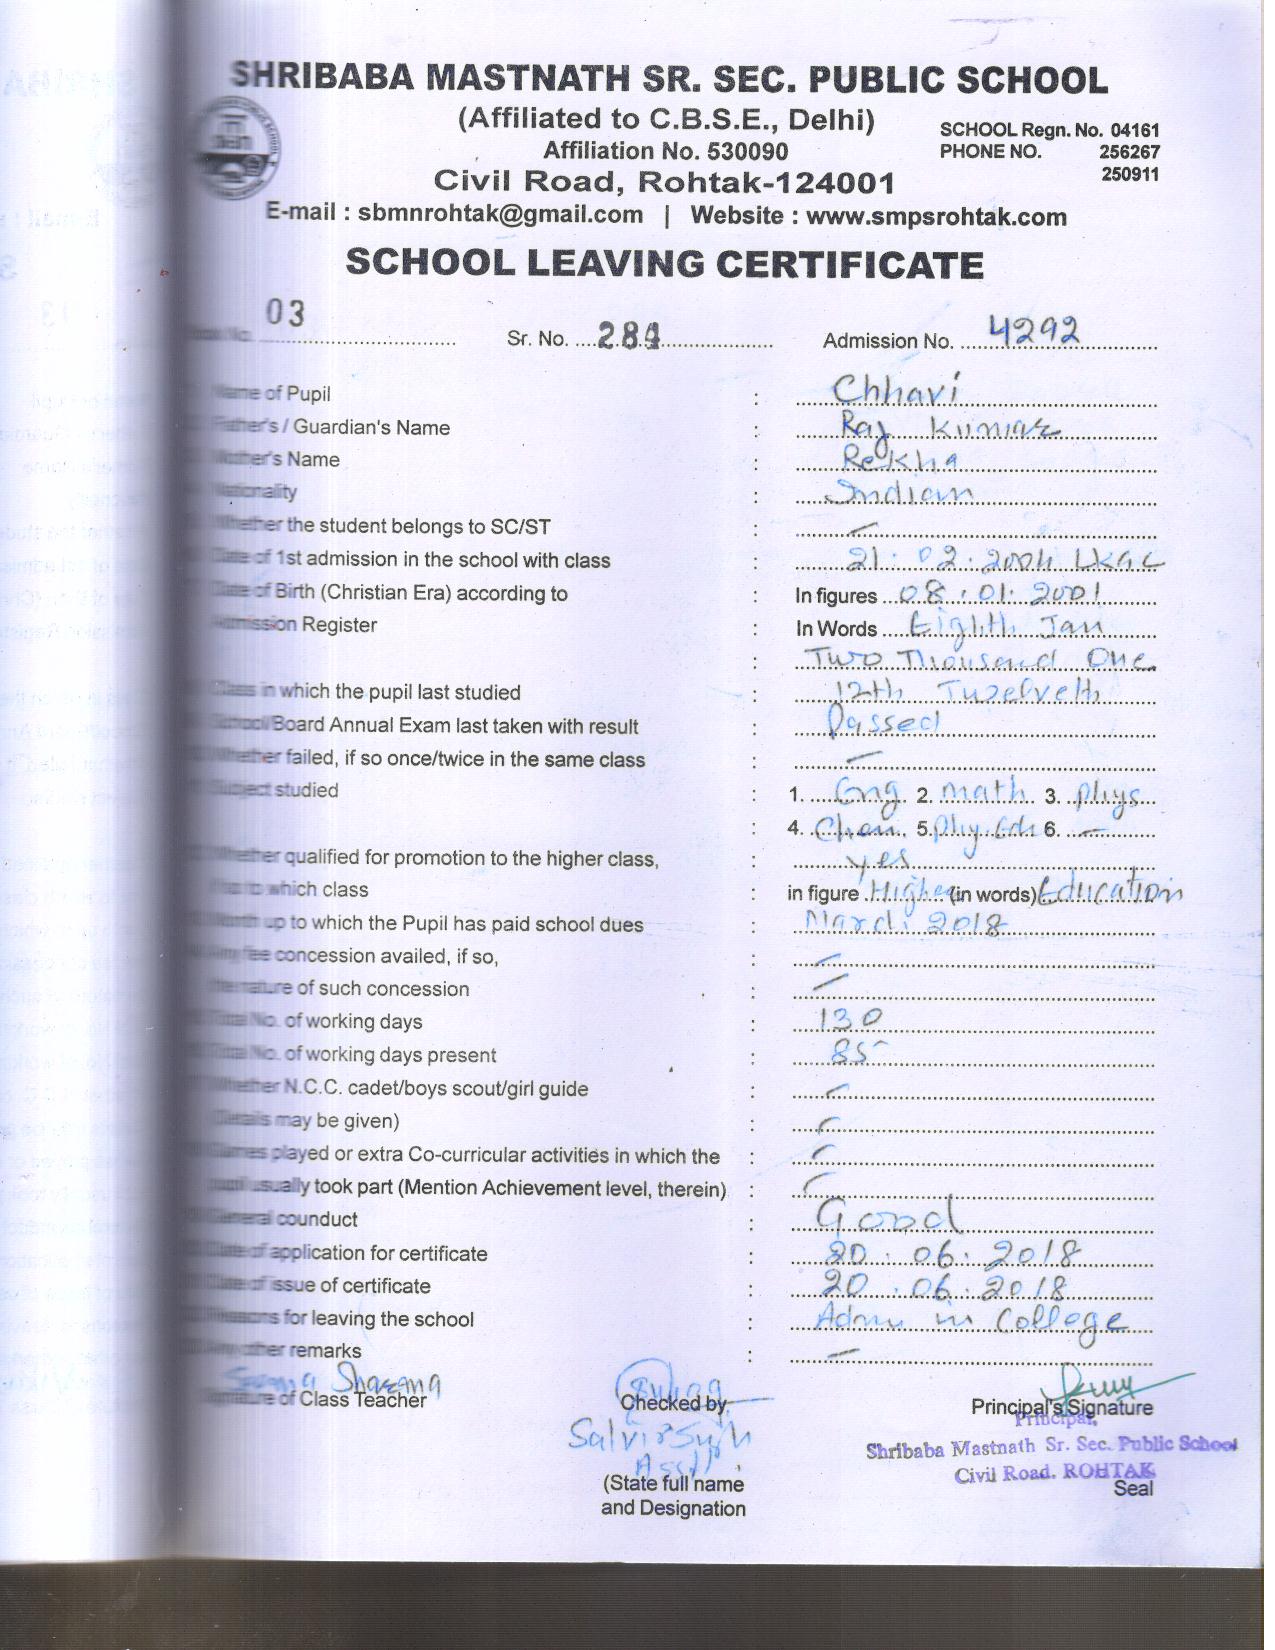 SHRIBABA MASTNATH SR. SEC. PUBLIC SCHOOL
(Affiliated to C.B.S.E., Delhi)
SCHOOL Regn. No. 04161
Affiliation No. 530090
PHONE NO. 256267
250911
Civil Road, Rohtak-124001
E-mail : sbmnrohtak@gmail.com | Website : www.smpsrohtak.com
SCHOOL LEAVING CERTIFICATE
No. 03 Sr. No. 284 Admission No. 4292
Name of Pupil : Chhavi
Father's / Guardian's Name : Raj Kumar
Mother's Name : Rekha
Nationality : Indian
Whether the student belongs to SC/ST : —
Date of 1st admission in the school with class : 21.02.2004 LKGC
Date of Birth (Christian Era) according to : In figures 08.01.2001
Admission Register : In Words Eighth Jan
: Two Thousand One
Class in which the pupil last studied : 12th Twelveth
School/Board Annual Exam last taken with result : Passed
Whether failed, if so once/twice in the same class : —
Subject studied : 1. Eng. 2. math 3. phys
: 4. Chem. 5. Phy. Edu 6. —
Whether qualified for promotion to the higher class, : yes
to which class : in figure Higher (in words) Education
Month up to which the Pupil has paid school dues : March 2018
Any fee concession availed, if so, : —
the nature of such concession : —
Total No. of working days : 130
Total No. of working days present : 85
Whether N.C.C. cadet/boys scout/girl guide : —
(Details may be given) : —
Games played or extra Co-curricular activities in which the : —
pupil usually took part (Mention Achievement level, therein) : —
General counduct : Good
Date of application for certificate : 20.06.2018
Date of issue of certificate : 20.06.2018
Reasons for leaving the school : Admn in College
Any other remarks : —
Sharma
Signature of Class Teacher Checked by Principal's Signature
Principal,
Shribaba Mastnath Sr. Sec. Public School
Civil Road. ROHTAK
Seal
(State full name
and Designation